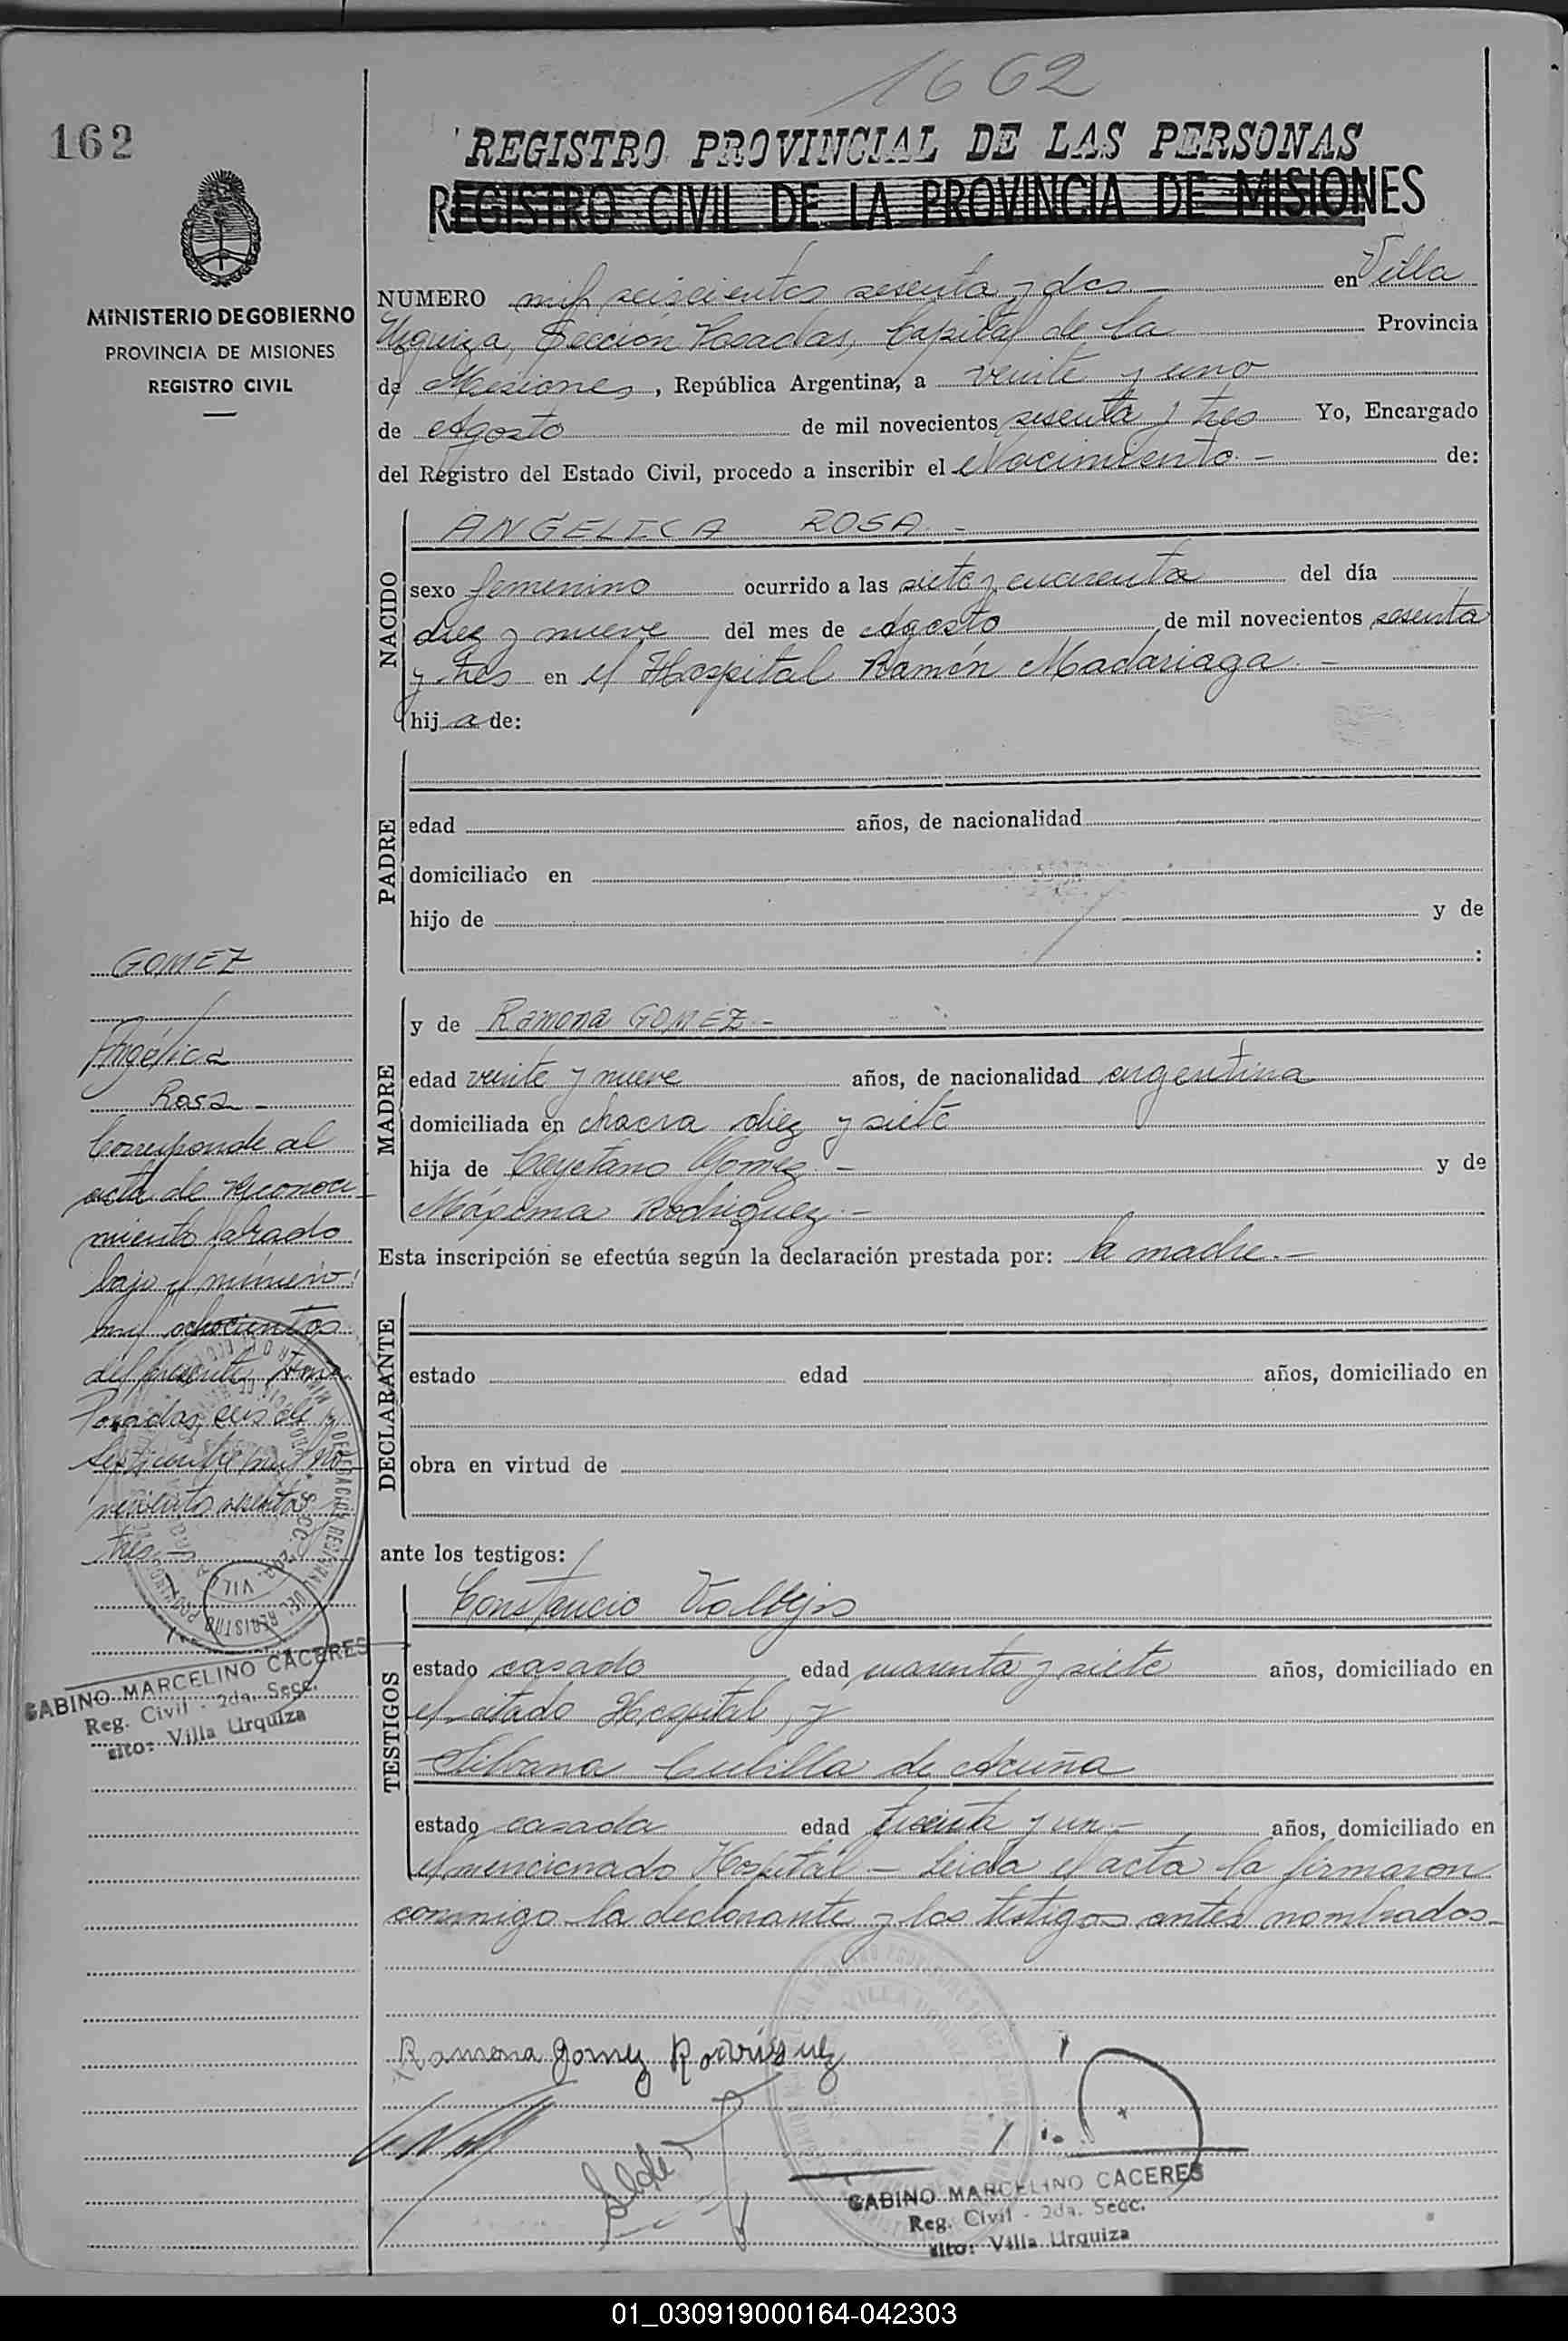 1662
162
REGISTRO PROVINCIAL DE LAS PERSONAS
REGISTRO CIVIL DE LA PROVINCIA DE MISIONES
MINISTERIO DE GOBIERNO
PROVINCIA DE MISIONES
REGISTRO CIVIL
NUMERO mil seiscientos sesenta y dos en Villa
Urquiza, Sección Posadas, Capital de la Provincia
de Misiones, República Argentina, a veinte y uno
de Agosto de mil novecientos sesenta y tres Yo, Encargado
del Registro del Estado Civil, procedo a inscribir el Nacimiento.- de:
NACIDO
ANGELICA ROSA.-
sexo femenino ocurrido a las siete y cuarenta del día
diez y nueve del mes de Agosto de mil novecientos sesenta
y tres en el Hospital Ramón Madariaga.-
hija de:
PADRE
edad años, de nacionalidad
domiciliado en
hijo de y de
:
MADRE
y de Ramona GOMEZ.-
edad veinte y nueve años, de nacionalidad argentina
domiciliada en chacra diez y siete
hija de Cayetano Gomez.- y de
Máxima Rodriguez.-
Esta inscripción se efectúa según la declaración prestada por: la madre.-
DECLARANTE
estado edad años, domiciliado en
obra en virtud de
ante los testigos:
TESTIGOS
Constancio Vallejos
estado casado edad cuarenta y siete años, domiciliado en
el citado Hospital, y
Silvana Cubilla de Acuña
estado casada edad treinta y un.- años, domiciliado en
el mencionado Hospital - Leida el acta la firmaron
conmigo la declarante y los testigos antes nombrados.-
GOMEZ
Angélica
Rosa.-
Corresponde al
acta de reconoci-
miento labrado
bajo el número:
mil ochocientos
del presente tomo.
Posadas, seis de
Septiembre mil no-
vecientos sesenta y
tres.-
GABINO MARCELINO CACERES
Reg. Civil - 2da. Secc.
sito: Villa Urquiza
Ramona Gomez Rodriguez
GABINO MARCELINO CACERES
Reg. Civil - 2da. Secc.
sito: Villa Urquiza
01_030919000164-042303